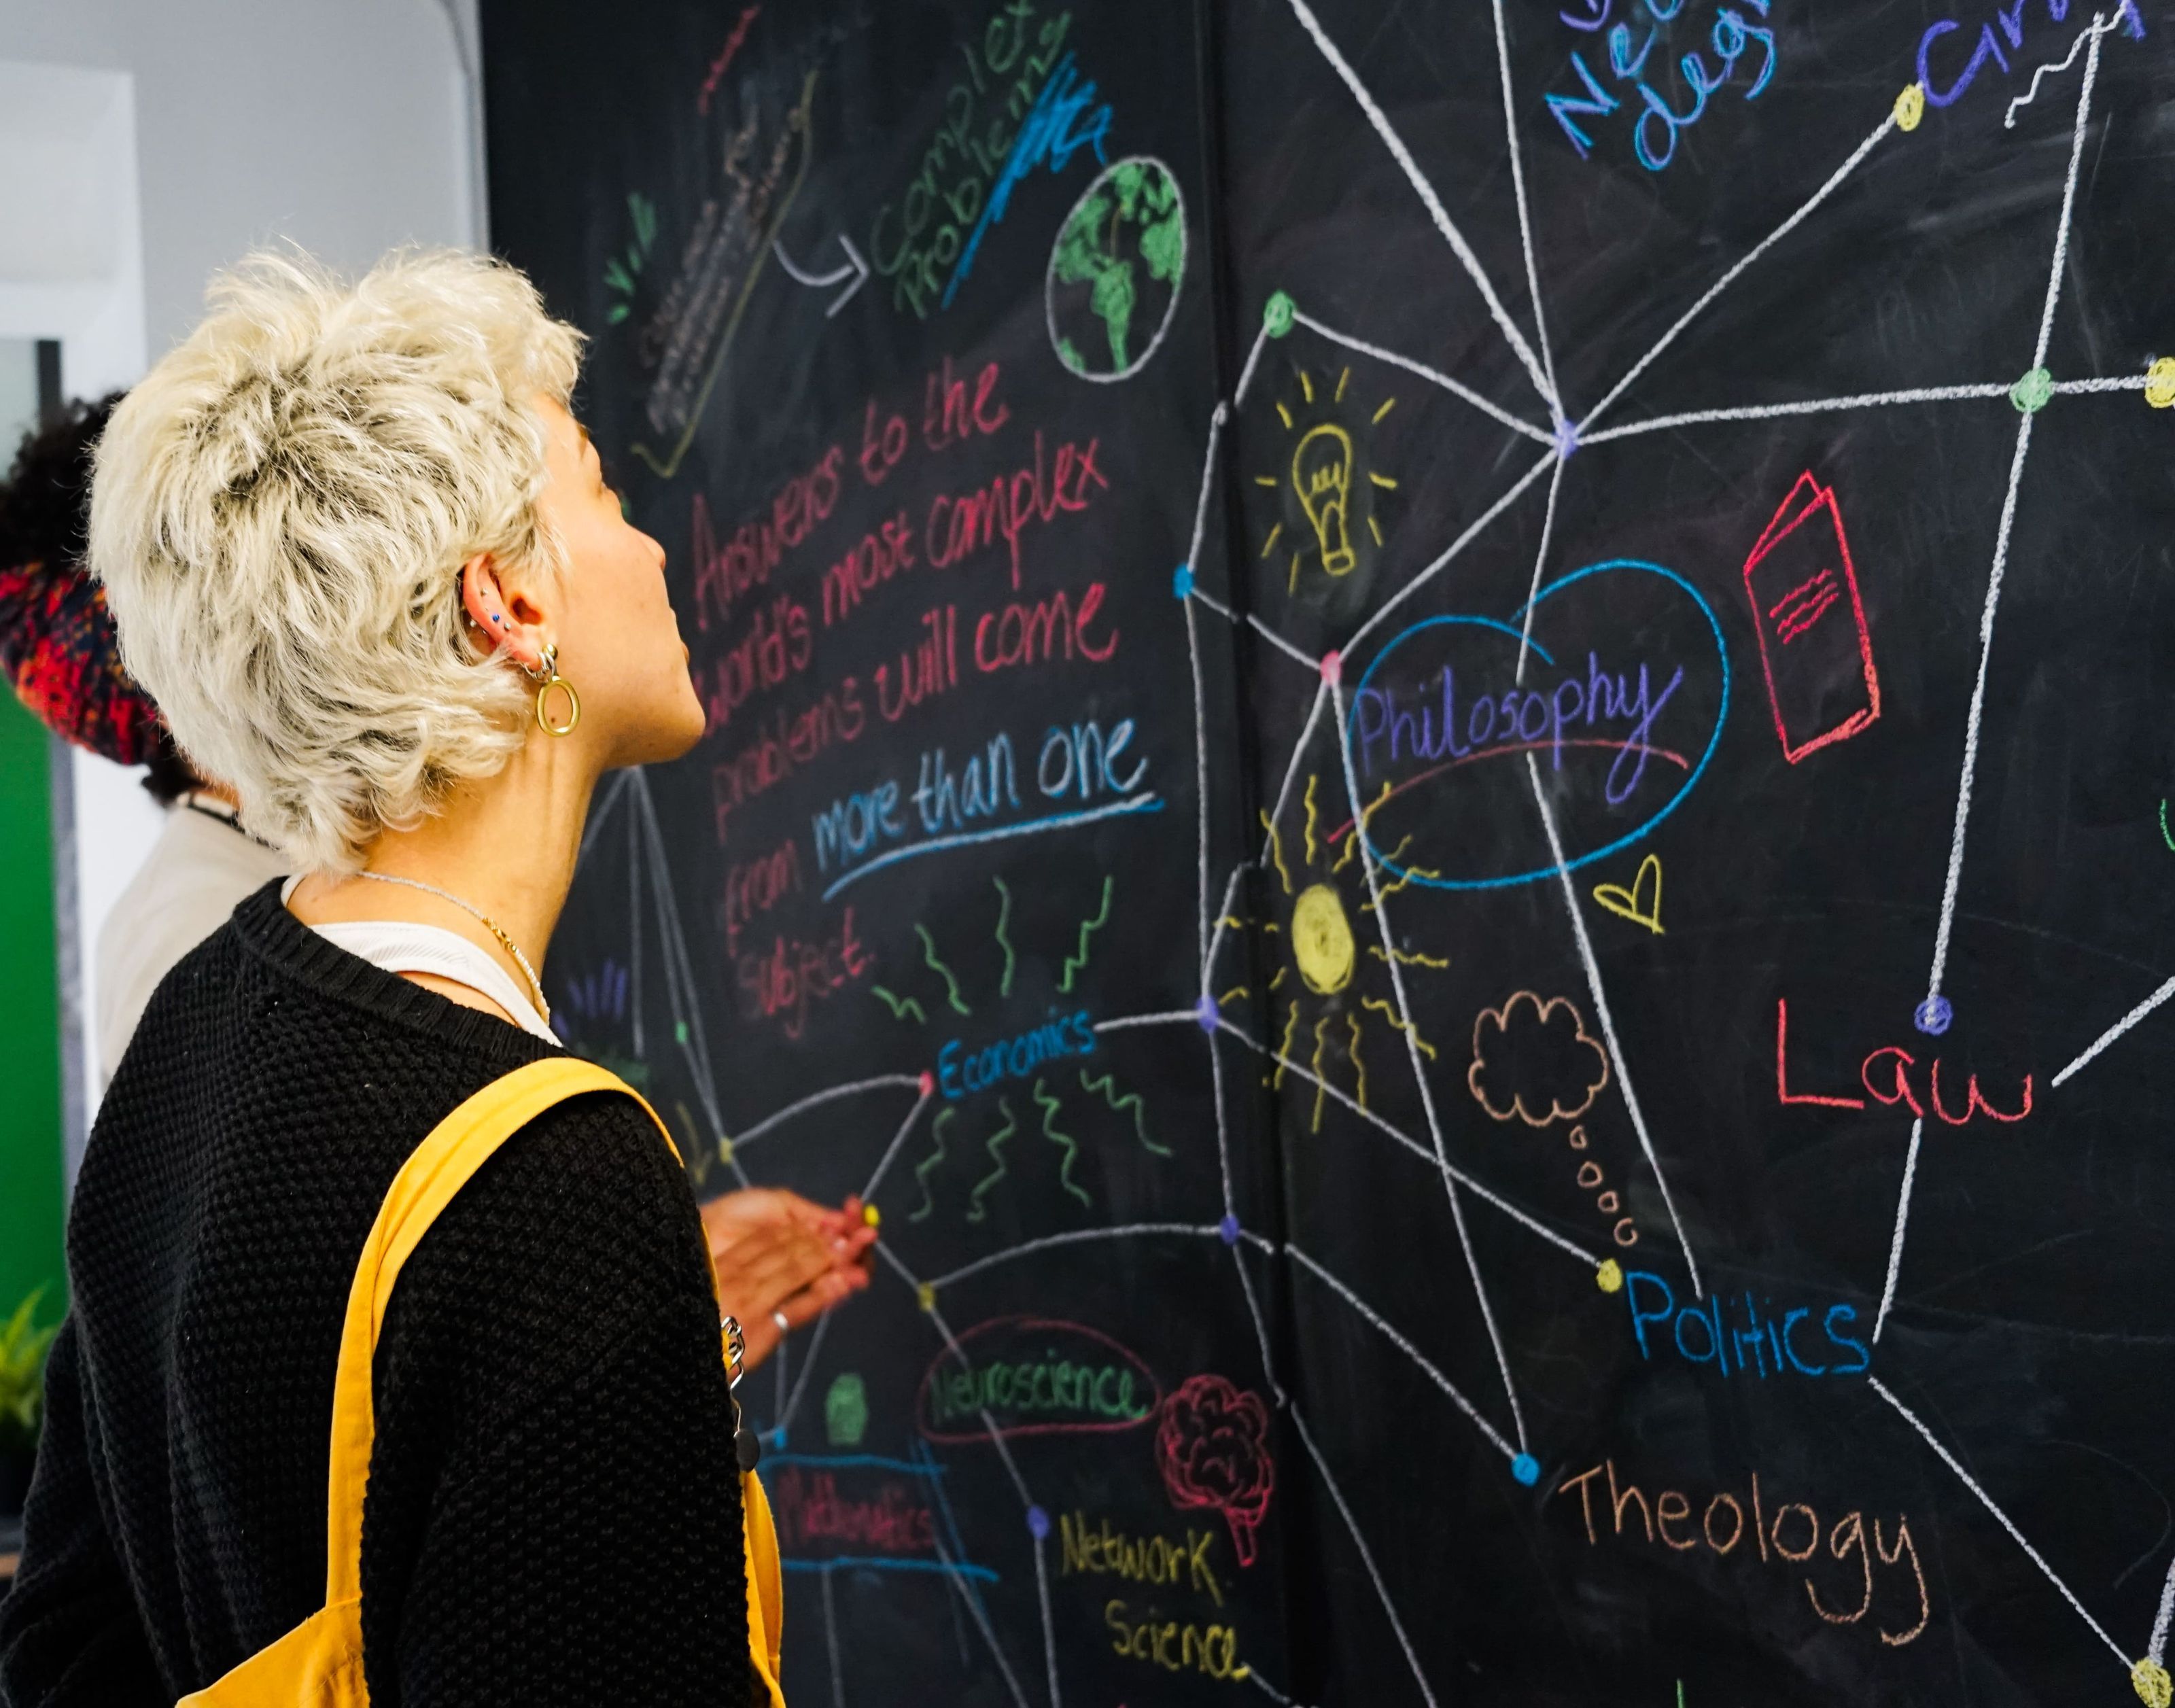 Complex
Problems
Answers to the
world's most complex
problems will come
from more than one
subject.
Philosophy
Economics
Law
Politics
Neuroscience
Mathematics
Theology
Network
Science